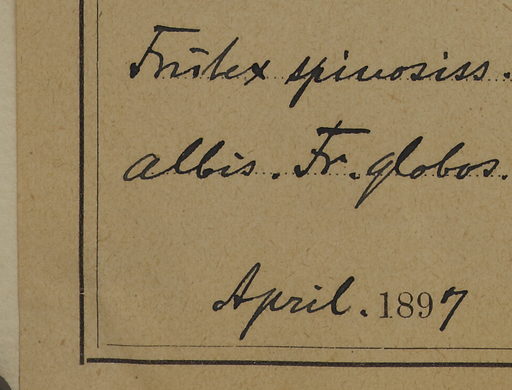 Frutex spinosiss.
albis. Fr. globos.
April. 1897